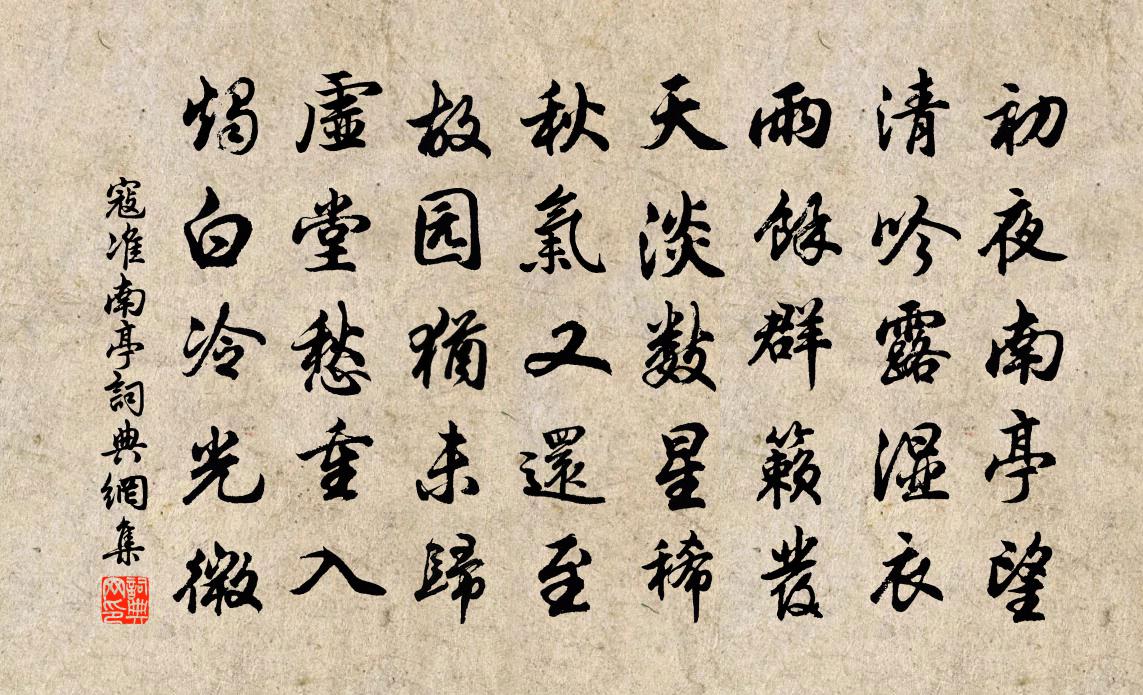 初夜南亭望
清吟露湿衣
雨餘群籟發
天淡數星稀
秋氣又還至
故园猶未歸
虛堂愁重入
燭白冷光微
寇准南亭詞典網集
詞典
网印